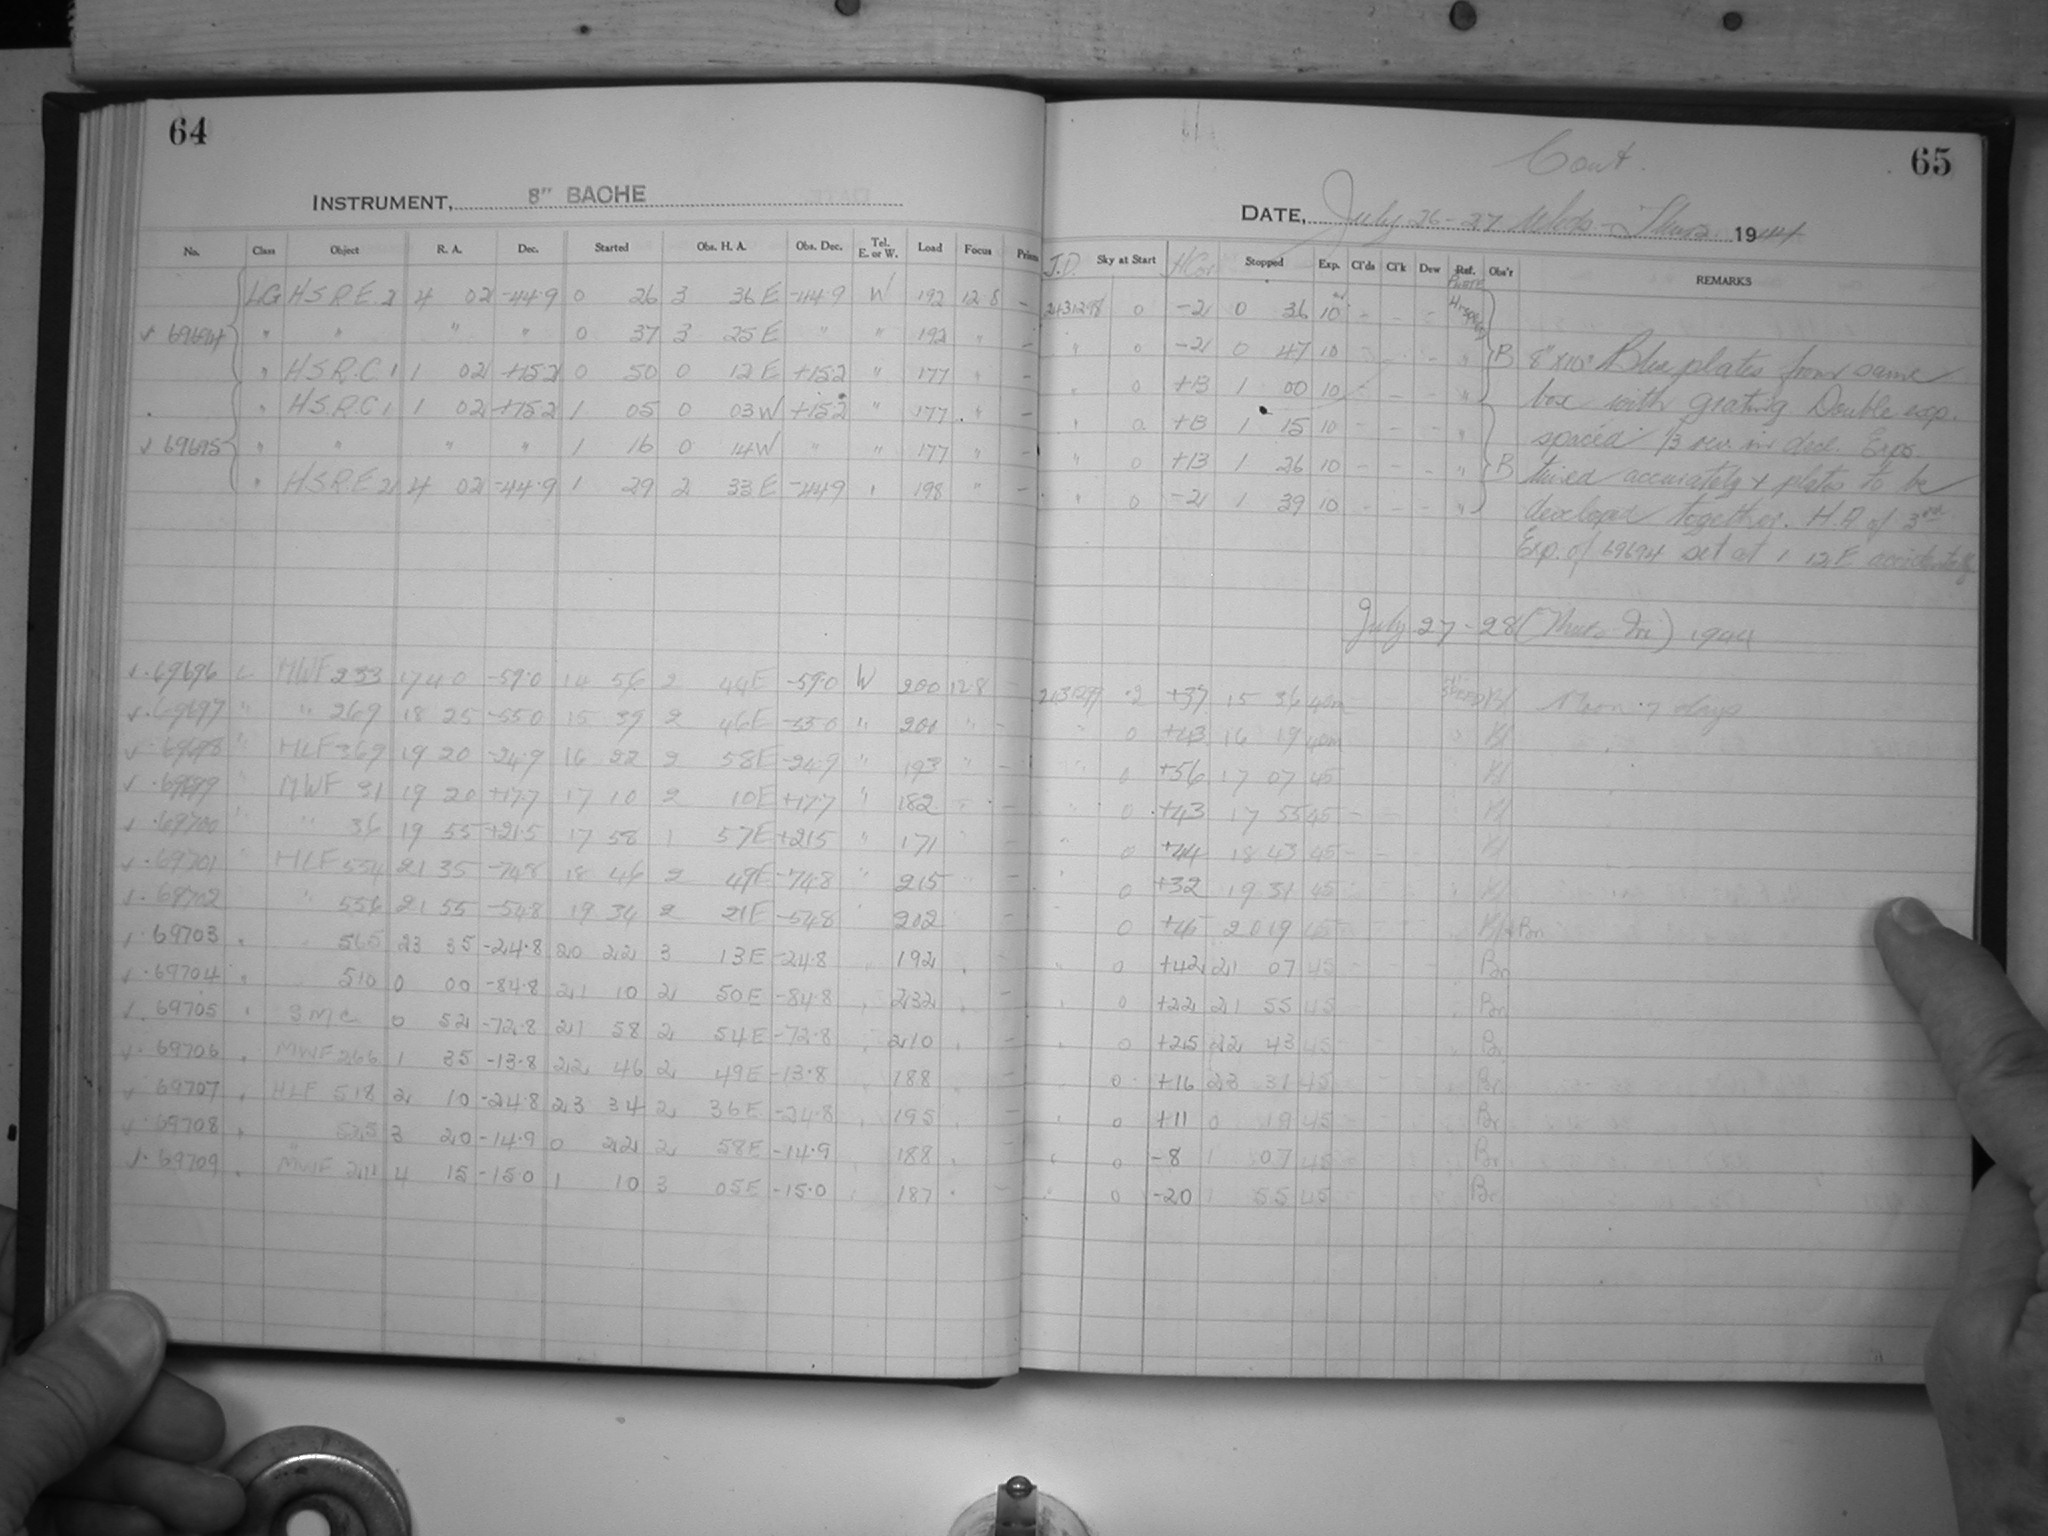 64
INSTRUMENT, 8" BACHE
No. Class Object R. A. Dec. Started Obs. H. A. Obs. Dec. Tel. E. or W. Load Focus Prism
LG H.S.R.E. 2 4 02 -44.9 0 26 3 36 E -44.9 W 192 12.8 -
√ 69694 " " " " 0 37 3 25 E " " 192 " -
" H.S.R.C. 1 1 02 +15.2 0 50 0 12 E +15.2 " 177 " -
" H.S.R.C 1 1 02 +15.2 1 05 0 03 W +15.2 " 177 " -
√ 69695 " " " " 1 16 0 14 W " " 177 " -
" H.S.R.E 2 4 02 -44.9 1 29 2 33 E -44.9 " 198 " -
√ 69696 C MWF 233 17 40 -59.0 14 56 2 44 E -59.0 W 200 12.8 -
√ 69697 " " 269 18 25 -55.0 15 39 2 46 E -55.0 " 201 " -
√ 69698 " HLF 369 19 20 -24.9 16 22 2 58 E -24.9 " 193 " -
√ 69699 " MWF 31 19 20 +17.7 17 10 2 10 E +17.7 " 182 -
√ 69700 " " 36 19 55 +21.5 17 58 1 57 E +21.5 " 171 -
√ 69701 " HLF 554 21 35 -74.8 18 46 2 49 E -74.8 " 215 -
√ 69702 " 556 21 55 -54.8 19 34 2 21 E -54.8 " 202 -
√ 69703 " " 565 23 35 -24.8 20 22 3 13 E -24.8 " 192 " -
√ 69704 " " 510 0 00 -84.8 21 10 2 50 E -84.8 " 232 " -
√ 69705 " S.M.C. 0 52 -72.8 21 58 2 54 E -72.8 " 210 " -
√ 69706 " MWF 266 1 35 -13.8 22 46 2 49 E -13.8 " 188 " -
√ 69707 " HLF 518 2 10 -24.8 23 34 2 36 E -24.8 " 195 " -
√ 69708 " " 525 3 20 -14.9 0 22 2 58 E -14.9 " 188 " -
√ 69709 " MWF 211 4 15 -15.0 1 10 3 05 E -15.0 " 187 " -
65
Cont.
DATE, July 26-27 Weds-Thurs 1944
J.D. Sky at Start H Cor Stopped Exp. Cl'ds Cl'k Dew Ref. Obs'r REMARKS
PLATE
2431298 0 -21 0 36 10m - - - Hi speed
" 0 -21 0 47 10 - - - " B 8" x 10" Blue plates from same
" 0 +13 1 00 10 - - - " box with grating Double exp.
" 0 +13 1 15 10 - - - " spaced 1/3 rev. in decl. Expo.
" 0 +13 1 26 10 - - - " B timed accurately & plates to be
" 0 -21 1 39 10 - - - " developed together. H.A of 3rd
Exp. of 69694 set at 1 12 E. accidentally
July 27-28 (Thurs-Fri) 1944
2431299 .2 +37 15 36 40m SPEED Moon 7 days
" 0 +43 16 19 40m "
" 0 +56 17 07 45
" 0 +43 17 55 45 - -
" 0 +44 18 43 45 - -
" 0 +32 19 31 45
0 +45 20 19 45 Bn
" 0 +42 21 07 45 Bn
" 0 +22 21 55 45 Bn
" 0 +25 22 43 45 Br
" 0 +16 23 31 45 Br
" 0 +11 0 19 45 Br
" 0 -8 1 07 45 Br
" 0 -20 1 55 45 Br